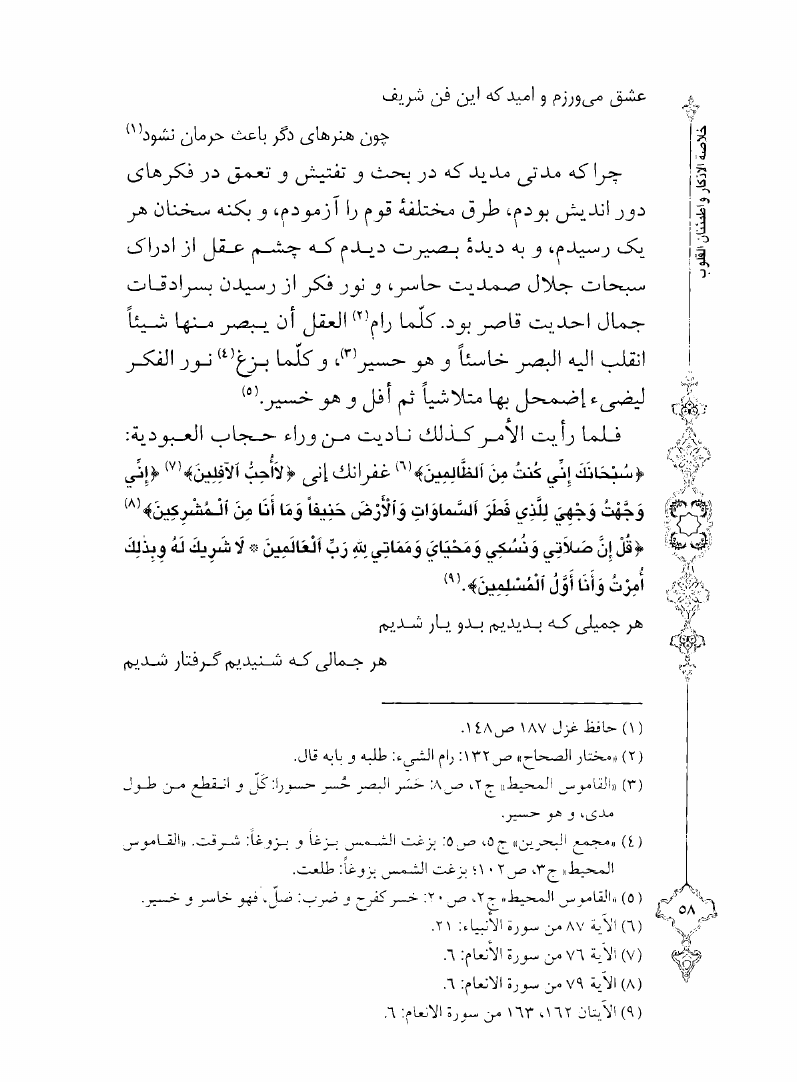 عشق می‌ورزم و امید که این فن شریف
چون هنرهای دگر باعث حرمان نشود(١)
چرا که مدتی مدید که در بحث و تفتیش و تعمق در فکرهای
دور اندیش بودم، طرق مختلفهٔ قوم را آزمودم، و بکنه سخنان هر
یک رسیدم، و به دیدهٔ بصیرت دیدم که چشم عقل از ادراک
سبحات جلال صمدیت حاسر، و نور فکر از رسیدن بسرادقات
جمال احدیت قاصر بود. کلّما رام(٢) العقل أن یبصر منها شیئاً
انقلب الیه البصر خاسئاً و هو حسیر(٣)، و کلّما بزغ(٤) نور الفکر
لیضیء إضمحل بها متلاشیاً ثم أفل و هو خسیر.(٥)
فلما رأیت الأمر کذلك نادیت من وراء حجاب العبودیة:
﴿سُبْحَانَكَ إِنِّي كُنتُ مِنَ ٱلظَّالِمِينَ﴾(٦) غفرانك إنی ﴿لَاأُحِبُّ ٱلآفِلِينَ﴾(٧) ﴿إِنِّي
وَجَّهْتُ وَجْهِيَ لِلَّذِي فَطَرَ ٱلسَّماوَاتِ وَٱلْأَرْضَ حَنِيفاً وَمَا أَنَا مِنَ ٱلْمُشْرِكِينَ﴾(٨)
﴿قُلْ إِنَّ صَلَاتِي وَنُسُكِي وَمَحْيَايَ وَمَمَاتِي لِلَّهِ رَبِّ ٱلْعَالَمِينَ * لَا شَرِيكَ لَهُ وَبِذٰلِكَ
أُمِرْتُ وَأَنَا أَوَّلُ ٱلْمُسْلِمِينَ﴾.(٩)
هر جمیلی که بدیدیم بدو یار شدیم
هر جمالی که شنیدیم گرفتار شدیم
(١) حافظ غزل ١٨٧ ص١٤٨.
(٢) «مختار الصحاح» ص١٣٢: رام الشيء: طلبه و بابه قال.
(٣) «القاموس المحیط» ج٢، ص٨: حَسَر البصر حُسر حسورا: کَلَّ و انقطع من طول
مدی، و هو حسیر.
(٤) «مجمع البحرین» ج٥، ص٥: بزغت الشمس بزغاً و بزوغاً: شرقت. «القاموس
المحیط» ج٣، ص١٠٢؛ بزغت الشمس بزوغاً: طلعت.
(٥) «القاموس المحیط» ج٢، ص٢٠: خسر کفرح و ضرب: ضلّ، فهو خاسر و خسیر.
(٦) الآیة ٨٧ من سورة الأنبیاء: ٢١.
(٧) الآیة ٧٦ من سورة الأنعام: ٦.
(٨) الآیة ٧٩ من سورة الانعام: ٦.
(٩) الآیتان ١٦٢، ١٦٣ من سورة الانعام: ٦.
خلاصة الاذکار و اطمئنان القلوب
٥٨